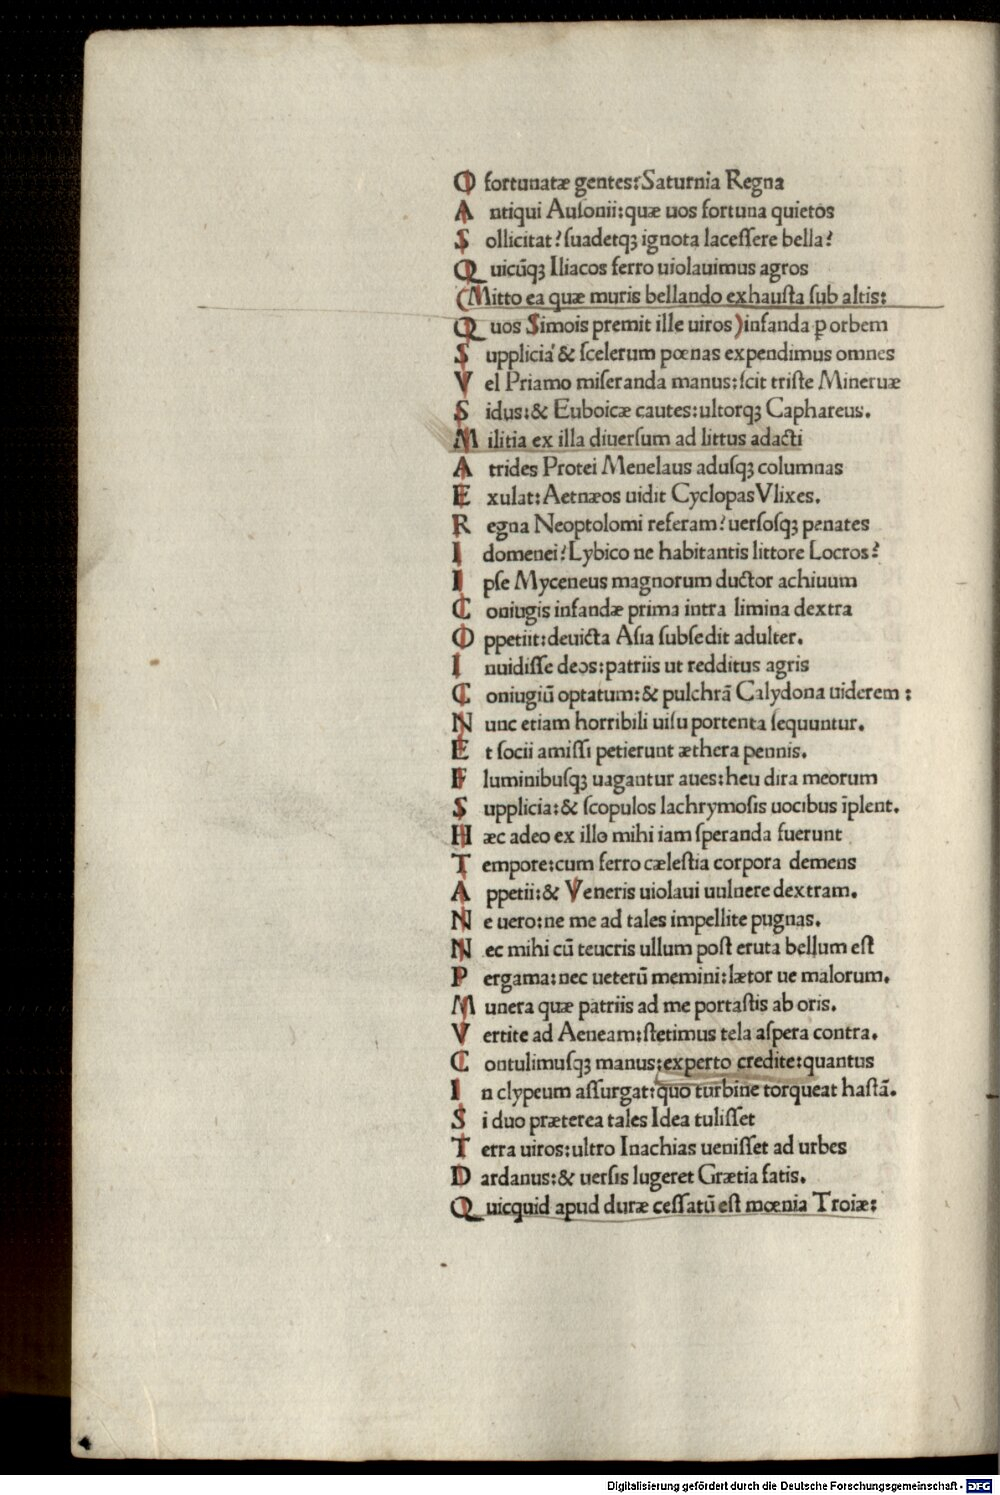 O fortunatæ gentes: Saturnia Regna
A ntiqui Auſonii: quæ uos fortuna quietos
S ollicitat? ſuadetqꝫ ignota laceſſere bella?
Q uicūqꝫ Iliacos ferro uiolauimus agros
(Mitto ea quæ muris bellando exhauſta ſub altis:
Q uos Simois premit ille uiros) infanda ꝑ orbem
S upplicia & ſcelerum pœnas expendimus omnes
V el Priamo miſeranda manus: ſcit triſte Mineruæ
S idus: & Euboicæ cautes: ultorqꝫ Caphareus.
M ilitia ex illa diuerſum ad littus adacti
A trides Protei Menelaus aduſqꝫ columnas
E xulat: Aetnæos uidit Cyclopas Vlixes.
R egna Neoptolomi referam? uerſoſqꝫ penates
I domenei? Lybico ne habitantis littore Locros?
I pſe Myceneus magnorum ductor achiuum
C oniugis infandæ prima intra limina dextra
O ppetiit: deuicta Aſia ſubſedit adulter.
I nuidiſſe deos: patriis ut redditus agris
C oniugiū optatum: & pulchrā Calydona uiderem:
N unc etiam horribili uiſu portenta ſequuntur.
E t ſocii amiſſi petierunt æthera pennis.
F luminibuſqꝫ uagantur aues: heu dira meorum
S upplicia: & ſcopulos lachrymoſis uocibus īplent.
H æc adeo ex illo mihi iam ſperanda fuerunt
T empore: cum ferro cæleſtia corpora demens
A ppetii: & Veneris uiolaui uulnere dextram.
N e uero: ne me ad tales impellite pugnas.
N ec mihi cū teucris ullum poſt eruta bellum eſt
P ergama: nec ueterū memini: lætor ue malorum.
M unera quæ patriis ad me portaſtis ab oris.
V ertite ad Aeneam: ſtetimus tela aſpera contra.
C ontulimuſqꝫ manus: experto credite: quantus
I n clypeum aſſurgat: quo turbine torqueat haſtā.
S i duo præterea tales Idea tuliſſet
T erra uiros: ultro Inachias ueniſſet ad urbes
D ardanus: & uerſis lugeret Grætia fatis.
Q uicquid apud duræ ceſſatū eſt mœnia Troiæ:
Digitalisierung gefördert durch die Deutsche Forschungsgemeinschaft - DFG